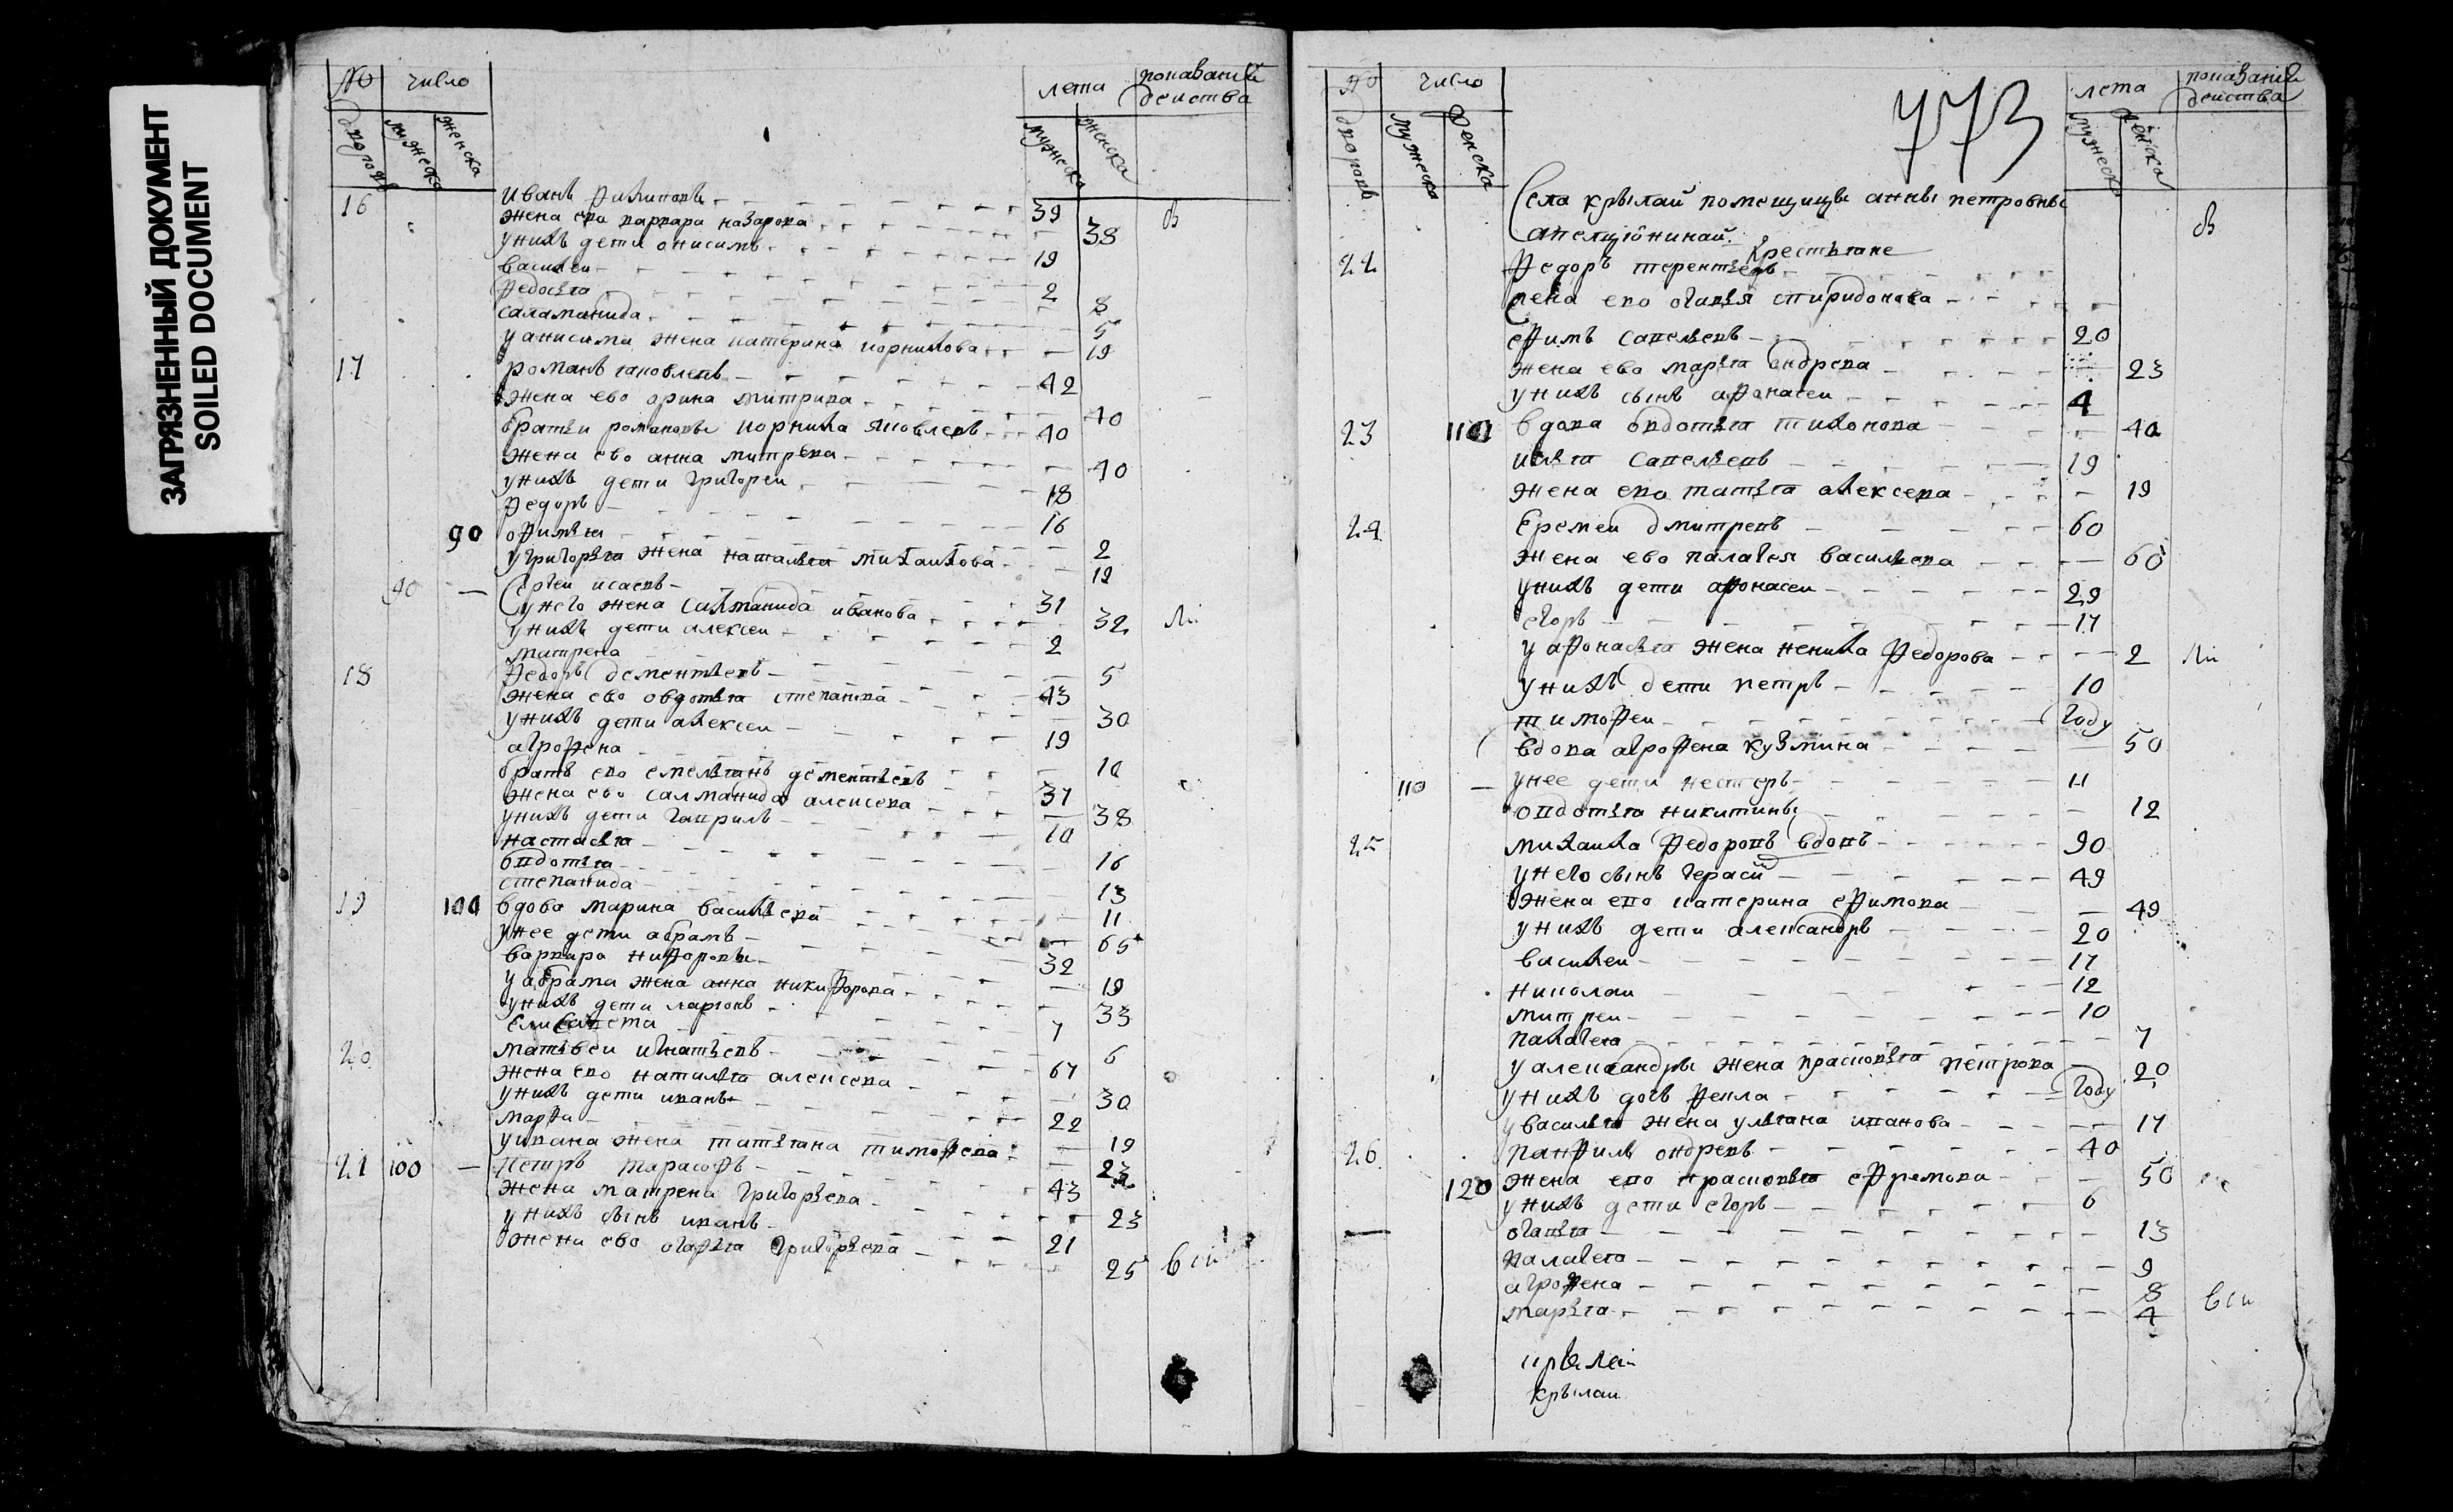 ЗАГРЯЗНЕННЫЙ ДОКУМЕНТ
SOILED DOCUMENT
№ число лета показании
действа
дворовъ мужеска женска мужеска женска
16 иванъ филиповъ 39 в
жена ево варвара назарова 38
у нихъ дети онисимъ 19
василеи 2
федосья 8
саламанида 5
у анисима жена катерина корнилова 19
17 романъ яковлевъ 42
жена ево орина митрива 40
братъи романовы корнила яковлевъ 40
жена ево анна митрева 40
у нихъ дети григореи 18
федоръ 16
90 офимья 2
у григорья жена наталья михаилова 19
90 — сергеи исаевъ 31
у него жена салманида иванова 32 ли
у нихъ дети алексеи 2
матрена 5
18 федоръ дементьевъ 43
жена ево овдотья степанова 30
у нихъ дети алексеи 19
агрофена 10
братъ ево емельянъ дементьевъ 37
жена ево салманида алексева 38
у нихъ дети гаврилъ 10
настасья 16
овдотья 13
степанида 11
19 100 вдова марина васильева 65
у нее дети абрамъ 32
варвара нифоровы 19
у абрама жена анна никифорова 33
у нихъ дети ларионъ 7
елисавета 6
20 матвеи игнатьевъ 67
жена ево наталья алексева 30
у нихъ дети иванъ 22
марфа 19
у ивана жена татьяна тимофева 23
21 100 — петръ тарасовъ 43
жена матрена григорьева 23
у нихъ сынъ иванъ 21
жена ево огафья григорьева 25 вси
773
№ число лета показании
действа
дворовъ мужеска женска мужеска женска
села крылаи помещицы анны петровны
апелцюниной в
крестьяне
22 федоръ терентьевъ
жена ево огафья спиридонова
ефимъ савельевъ 20
жена ево марья ондрева 23
у нихъ сынъ афонасеи 4
23 110 вдова овдотья тихонова 40
илья савельевъ 19
жена ево татьяна алексева 19
24 еремеи дмитревъ 60
жена ево палагея васильева 60
у нихъ дети афонасеи 29
егоръ 17
у афонасья жена ненила федорова 2 ли
у нихъ дети петръ 10
тимофеи году
вдова агрофена кузмина 50
110 — у нее дети нестеръ 11
овдотья никитины 12
25 михаила федоровъ вдовъ 90
у него сынъ гераси 49
жена ево катерина ефимова 49
у нихъ дети александръ 20
василеи 17
николаи 12
митреи 10
палагея 7
у александры жена прасковья петрова 20
у нихъ дочь фекла году
у василья жена ульяна иванова 17
26 панфилъ ондревъ 40
120 жена ево прасковья ефремова 50
у нихъ дети егоръ 6
— огафья 13
палагея 9
агрофена 8
марья 4 вси
крылаи
крылаи